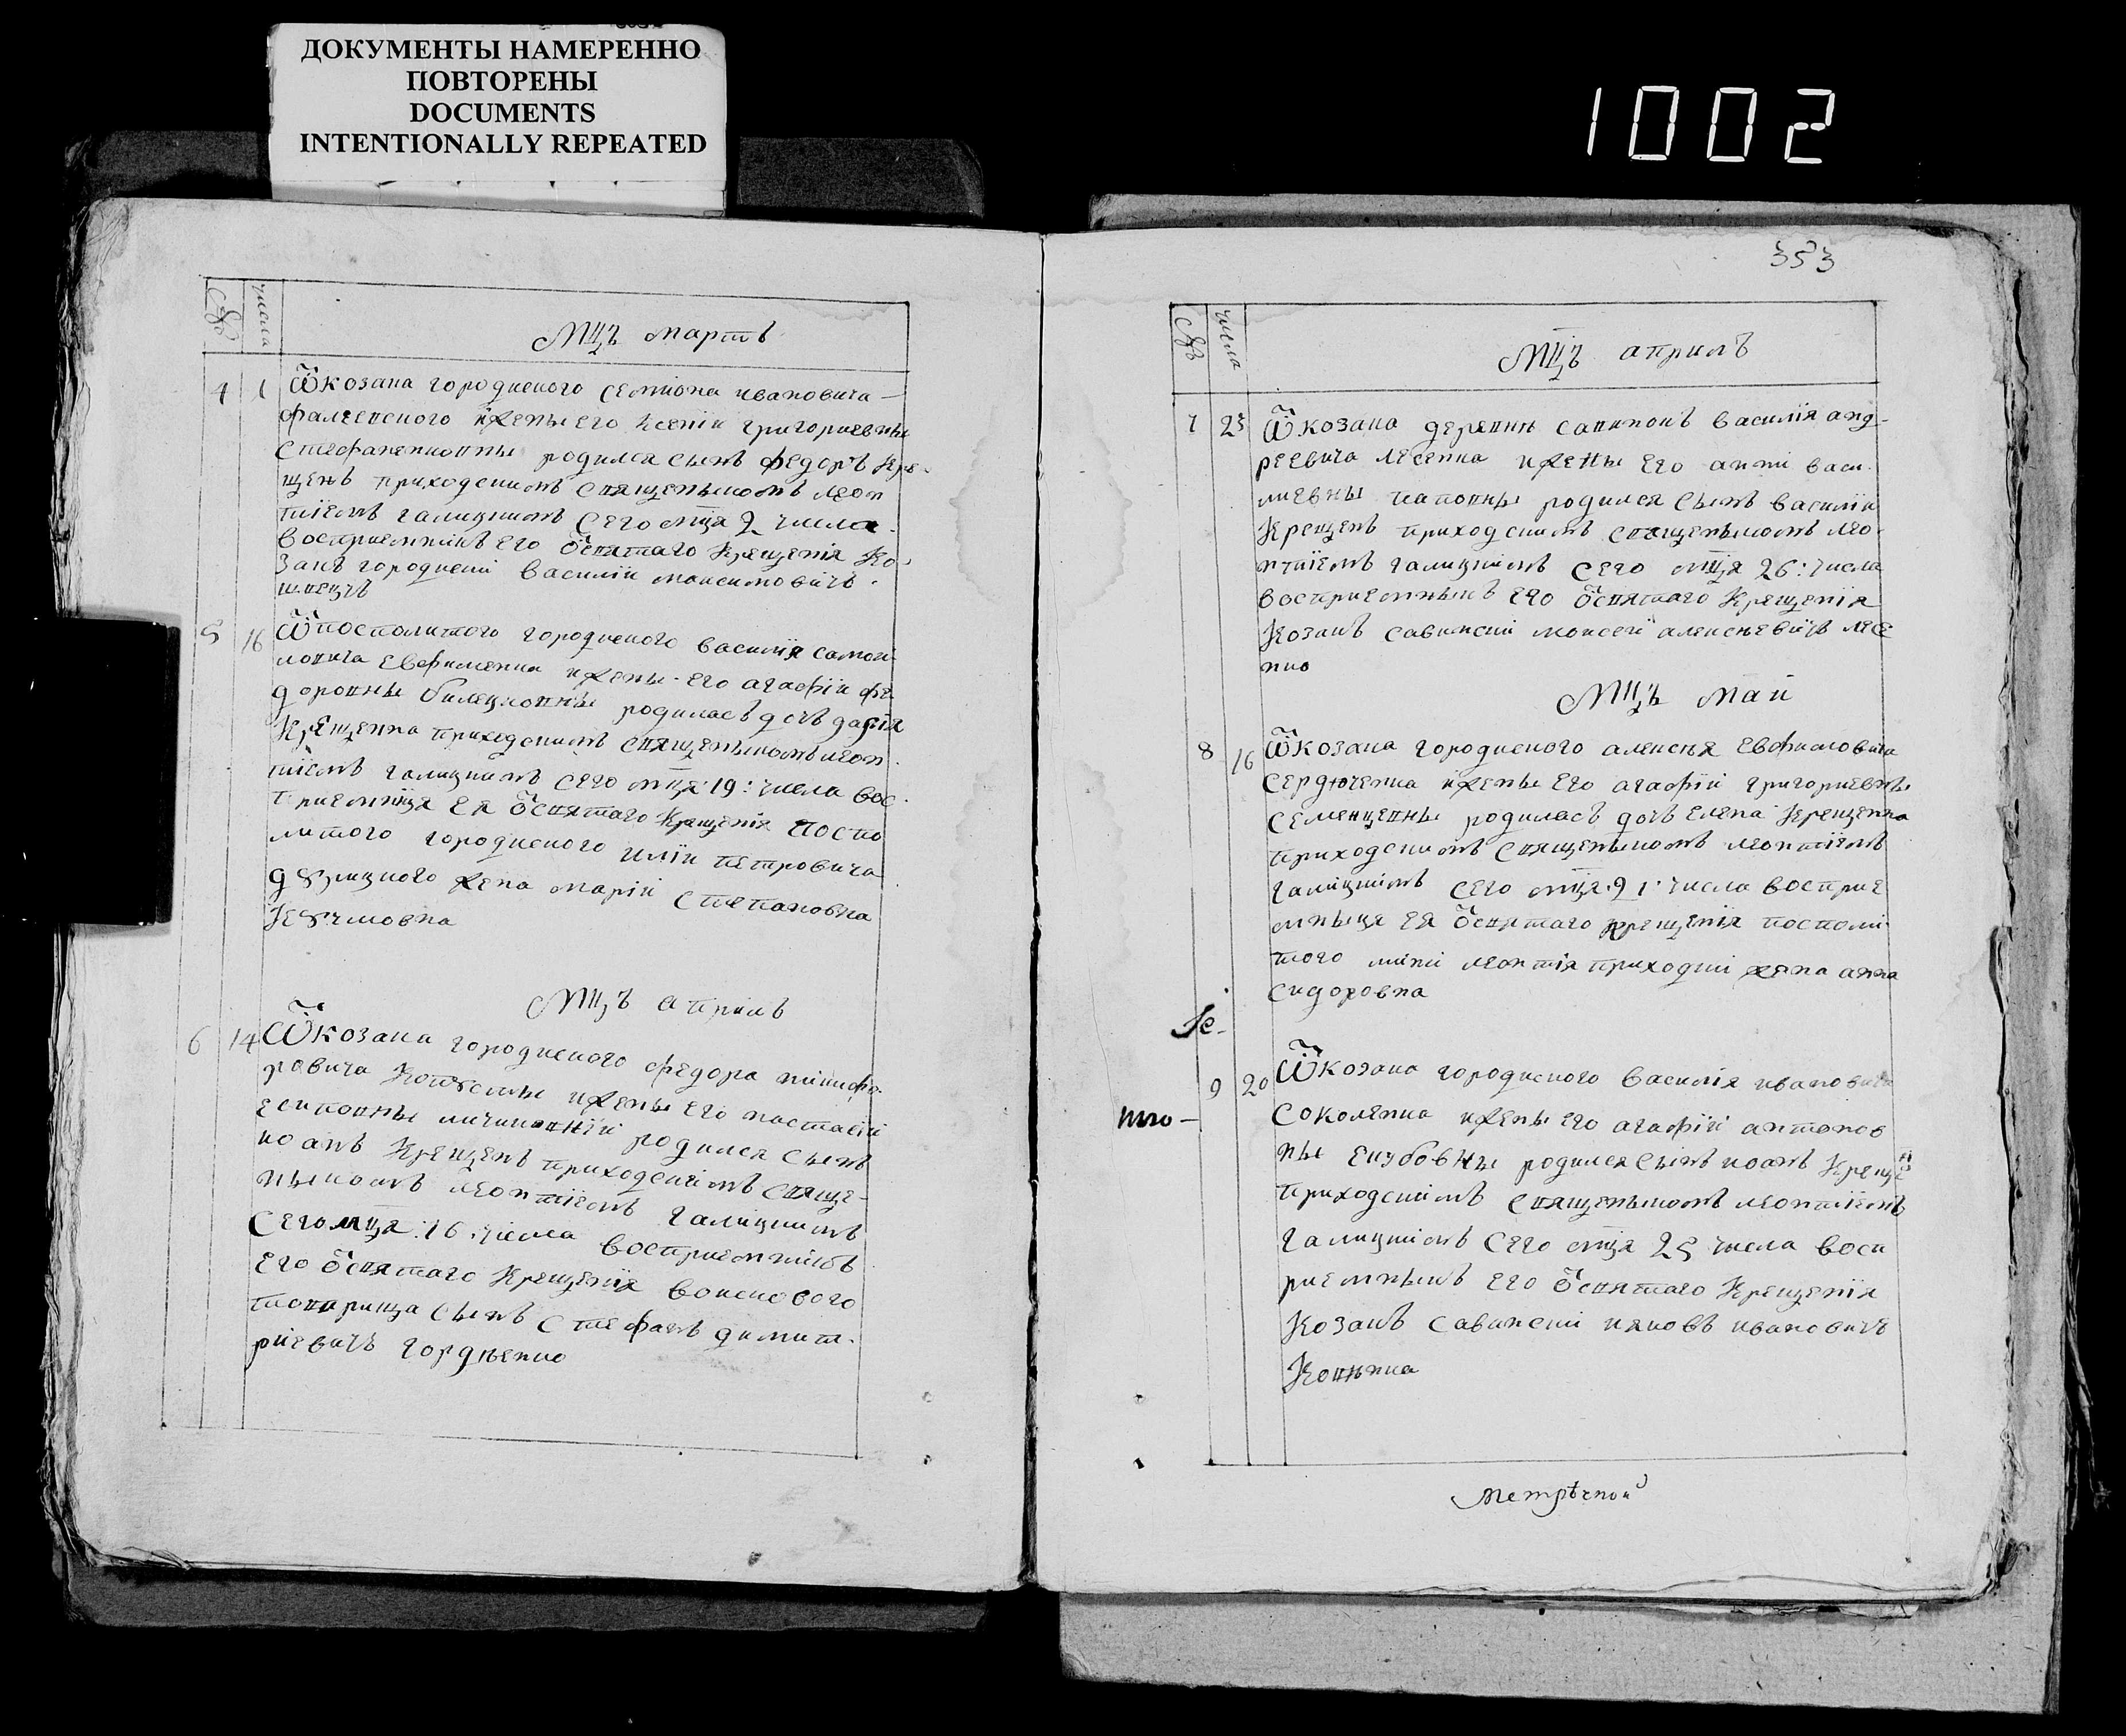 ДОКУМЕНТЫ НАМЕРЕННО
ПОВТОРЕНЫ
DOCUMENTS
INTENTIONALLY REPEATED
1002
числа
Мцъ мартъ
4 1 Ѿ козака городиского семиона ивановича
фалеевского и жены его Ксении григориевны
Стефаненковны родился сынъ федоръ Кре-
щенъ приходскимъ священникомъ леон
тиемъ галицкимъ сего мца 2 числа
восприемникъ его ѿ святаго Крещения Ко-
закъ городиский василий максимовичъ
5 16 Ѿ посполитого городиского василия самой-
ловича Евфименка и жены его агафии фе
доровны билецковны родиласъ дочъ дария
Крещенна приходскимъ священникомъ леон
тиемъ галицкимъ сего мца 19: числа вос
приемница ея ѿ святаго Крещения поспо
литого городиского илии петровича
жена мария степановна
Мцъ априль
6 14 Ѿ козака городиского федора никифо-
ровича и жены его настасии
родился сынъ
иоанъ Крещенъ приходскимъ свяще-
нникомъ леонтиемъ галицкимъ
сего мца 16 числа восприемникъ
его ѿ святаго Крещения воискового
товарища сынъ стефанъ димит-
риевичъ гордѣенко
353
числа
Мцъ априлъ
7 23 Ѿ козака деревни савинокъ василия анд-
реевича лесенка и жены его анни васи-
лиевны родился сынъ василий
Крещенъ приходскимъ священникомъ лео-
нтиемъ галицкимъ сего мца 26: числа
восприемникъ его ѿ святаго Крещения
Козакъ савинский моисей алексѣевичъ лесе
нко
Мцъ май
8 16 Ѿ козака городиского алексѣя Евфимовича
сердюченка и жены его агафии григориевны
семенцевны родиласъ дочъ елена Крещенна
приходскимъ священникомъ леонтиемъ
галицкимъ сего мца 21 числа восприе
мница ея ѿ святаго крещения посполи-
того леонтия приходки жена анна
сидоровна
9 20 Ѿ козака городиского василия ивановича
соколенка и жены его агафии антонов
ны родился сынъ иоанъ Креще
приходскимъ священникомъ леонтиемъ
галицкимъ сего мца 25 числа восп
риемникъ его ѿ святаго Крещения
Козакъ савинский яковъ ивановичъ